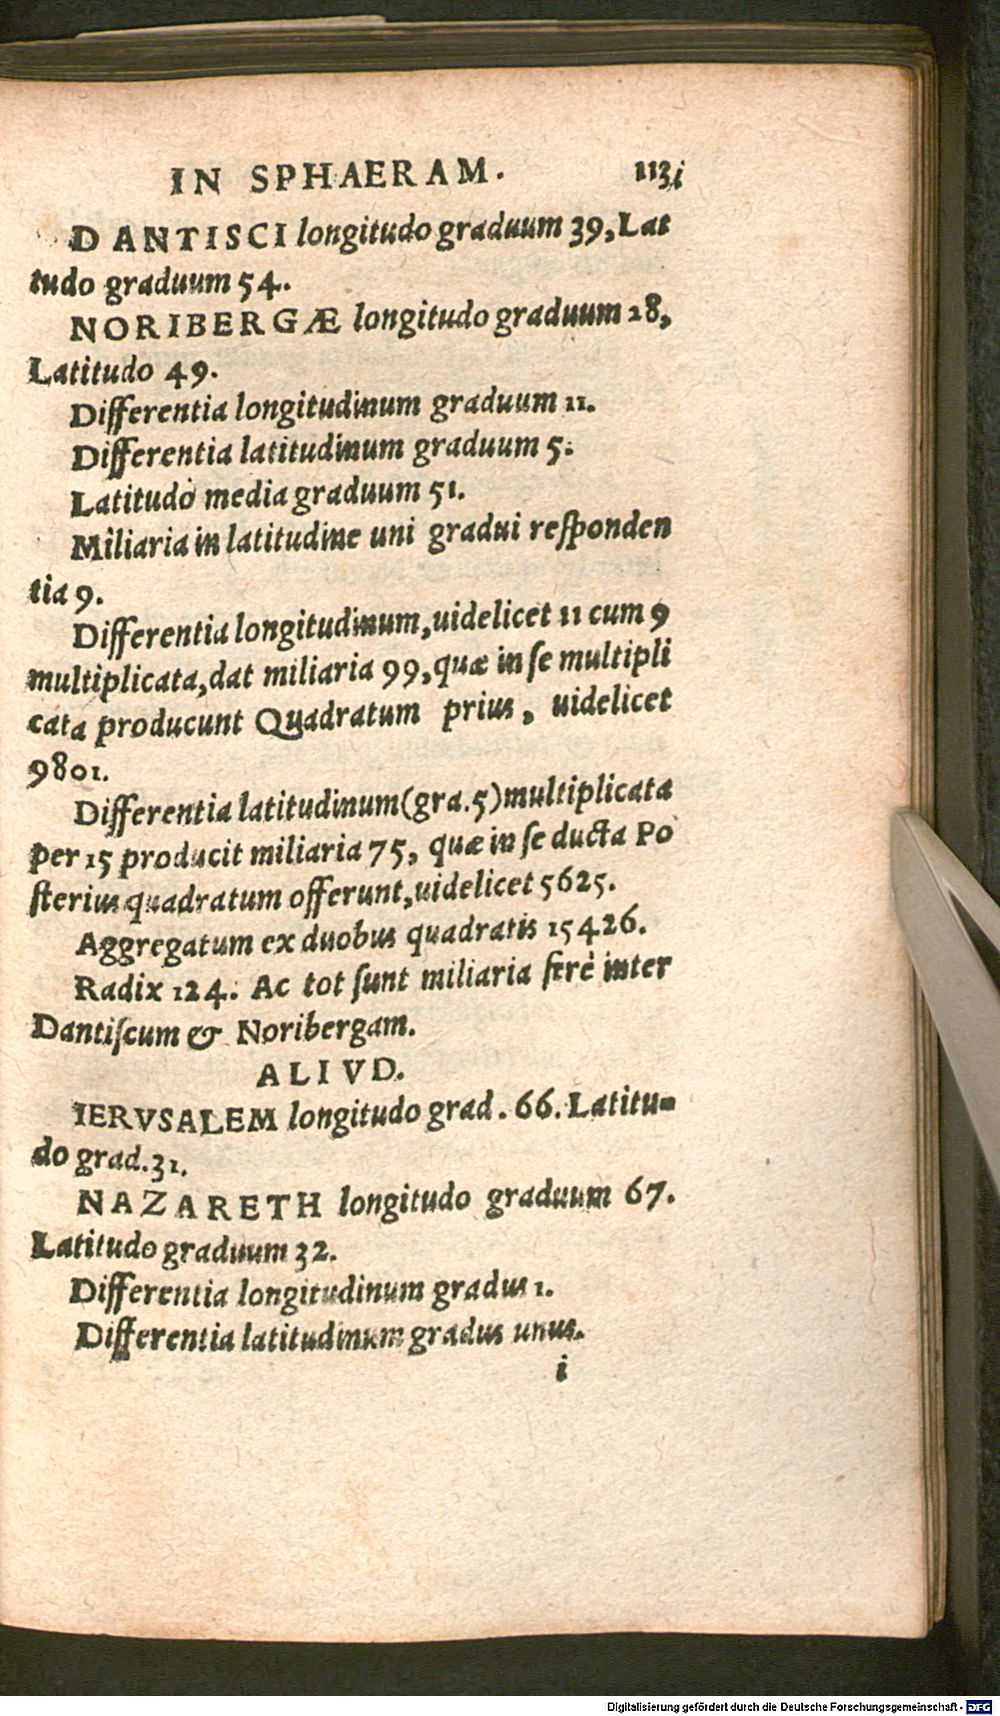 IN SPHAERAM. 113i
DANTISCI longitudo graduum 39, Lat
tudo graduum 54.
NORIBERGÆ longitudo graduum 28,
Latitudo 49.
Differentia longitudinum graduum 11.
Differentia latitudinum graduum 5.
Latitudo media graduum 51.
Miliaria in latitudine uni gradui responden
tia 9.
Differentia longitudinum, uidelicet 11 cum 9
multiplicata, dat miliaria 99, quæ in se multipli
cata producunt Quadratum prius, uidelicet
9801.
Differentia latitudinum (gra. 5) multiplicata
per 15 producit miliaria 75, quæ in se ducta Po
sterius quadratum offerunt, uidelicet 5625.
Aggregatum ex duobus quadratis 15426.
Radix 124. Ac tot sunt miliaria ferè inter
Dantiscum & Noribergam.
ALIVD.
IERVSALEM longitudo grad. 66. Latitu-
do grad. 31.
NAZARETH longitudo graduum 67.
Latitudo graduum 32.
Differentia longitudinum gradus 1.
Differentia latitudinum gradus unus.
i
Digitalisierung gefördert durch die Deutsche Forschungsgemeinschaft - DFG